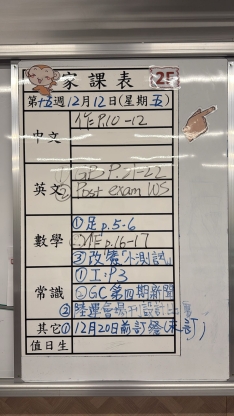 家課表 2F
第十五週12月12日(星期五)
中文 作P.10-12
英文 ①GB P.21-22
②Post exam WS
數學 ①足p.5-6
②作p.16-17
③改雙小測
常識 ①工:P3
②GC第四期新聞
②陸運會場刊設計
其它 ① 12月20日前訂餐(未訂)
值日生